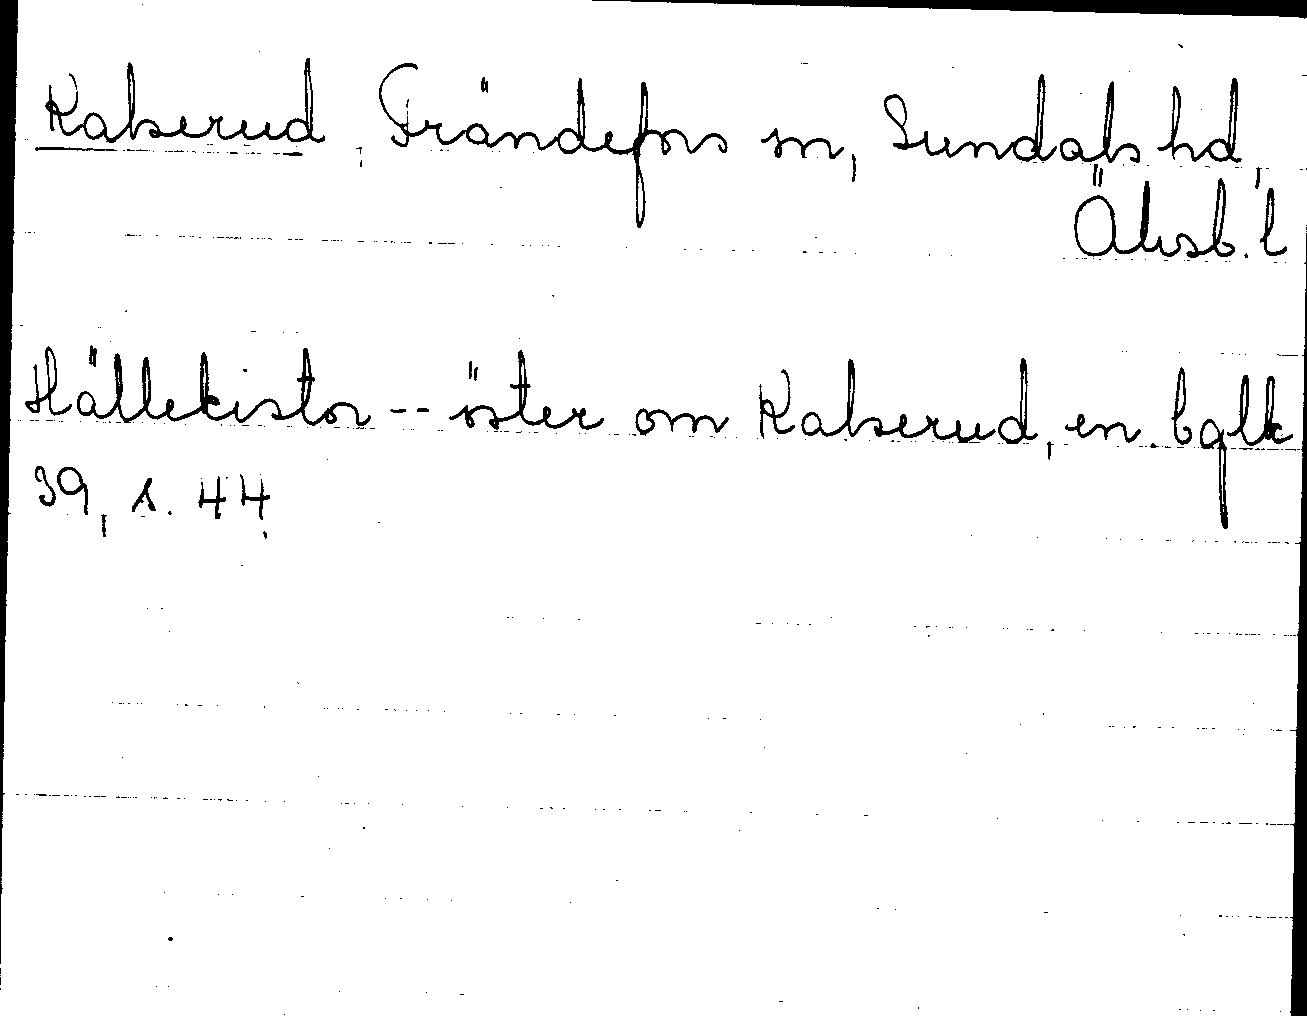 Kalserud, Frändefors sn, Sundals hd,
Älvsb. l
Hällekistor -- öster om Kalserud, en. bqlk
39, s. 44.